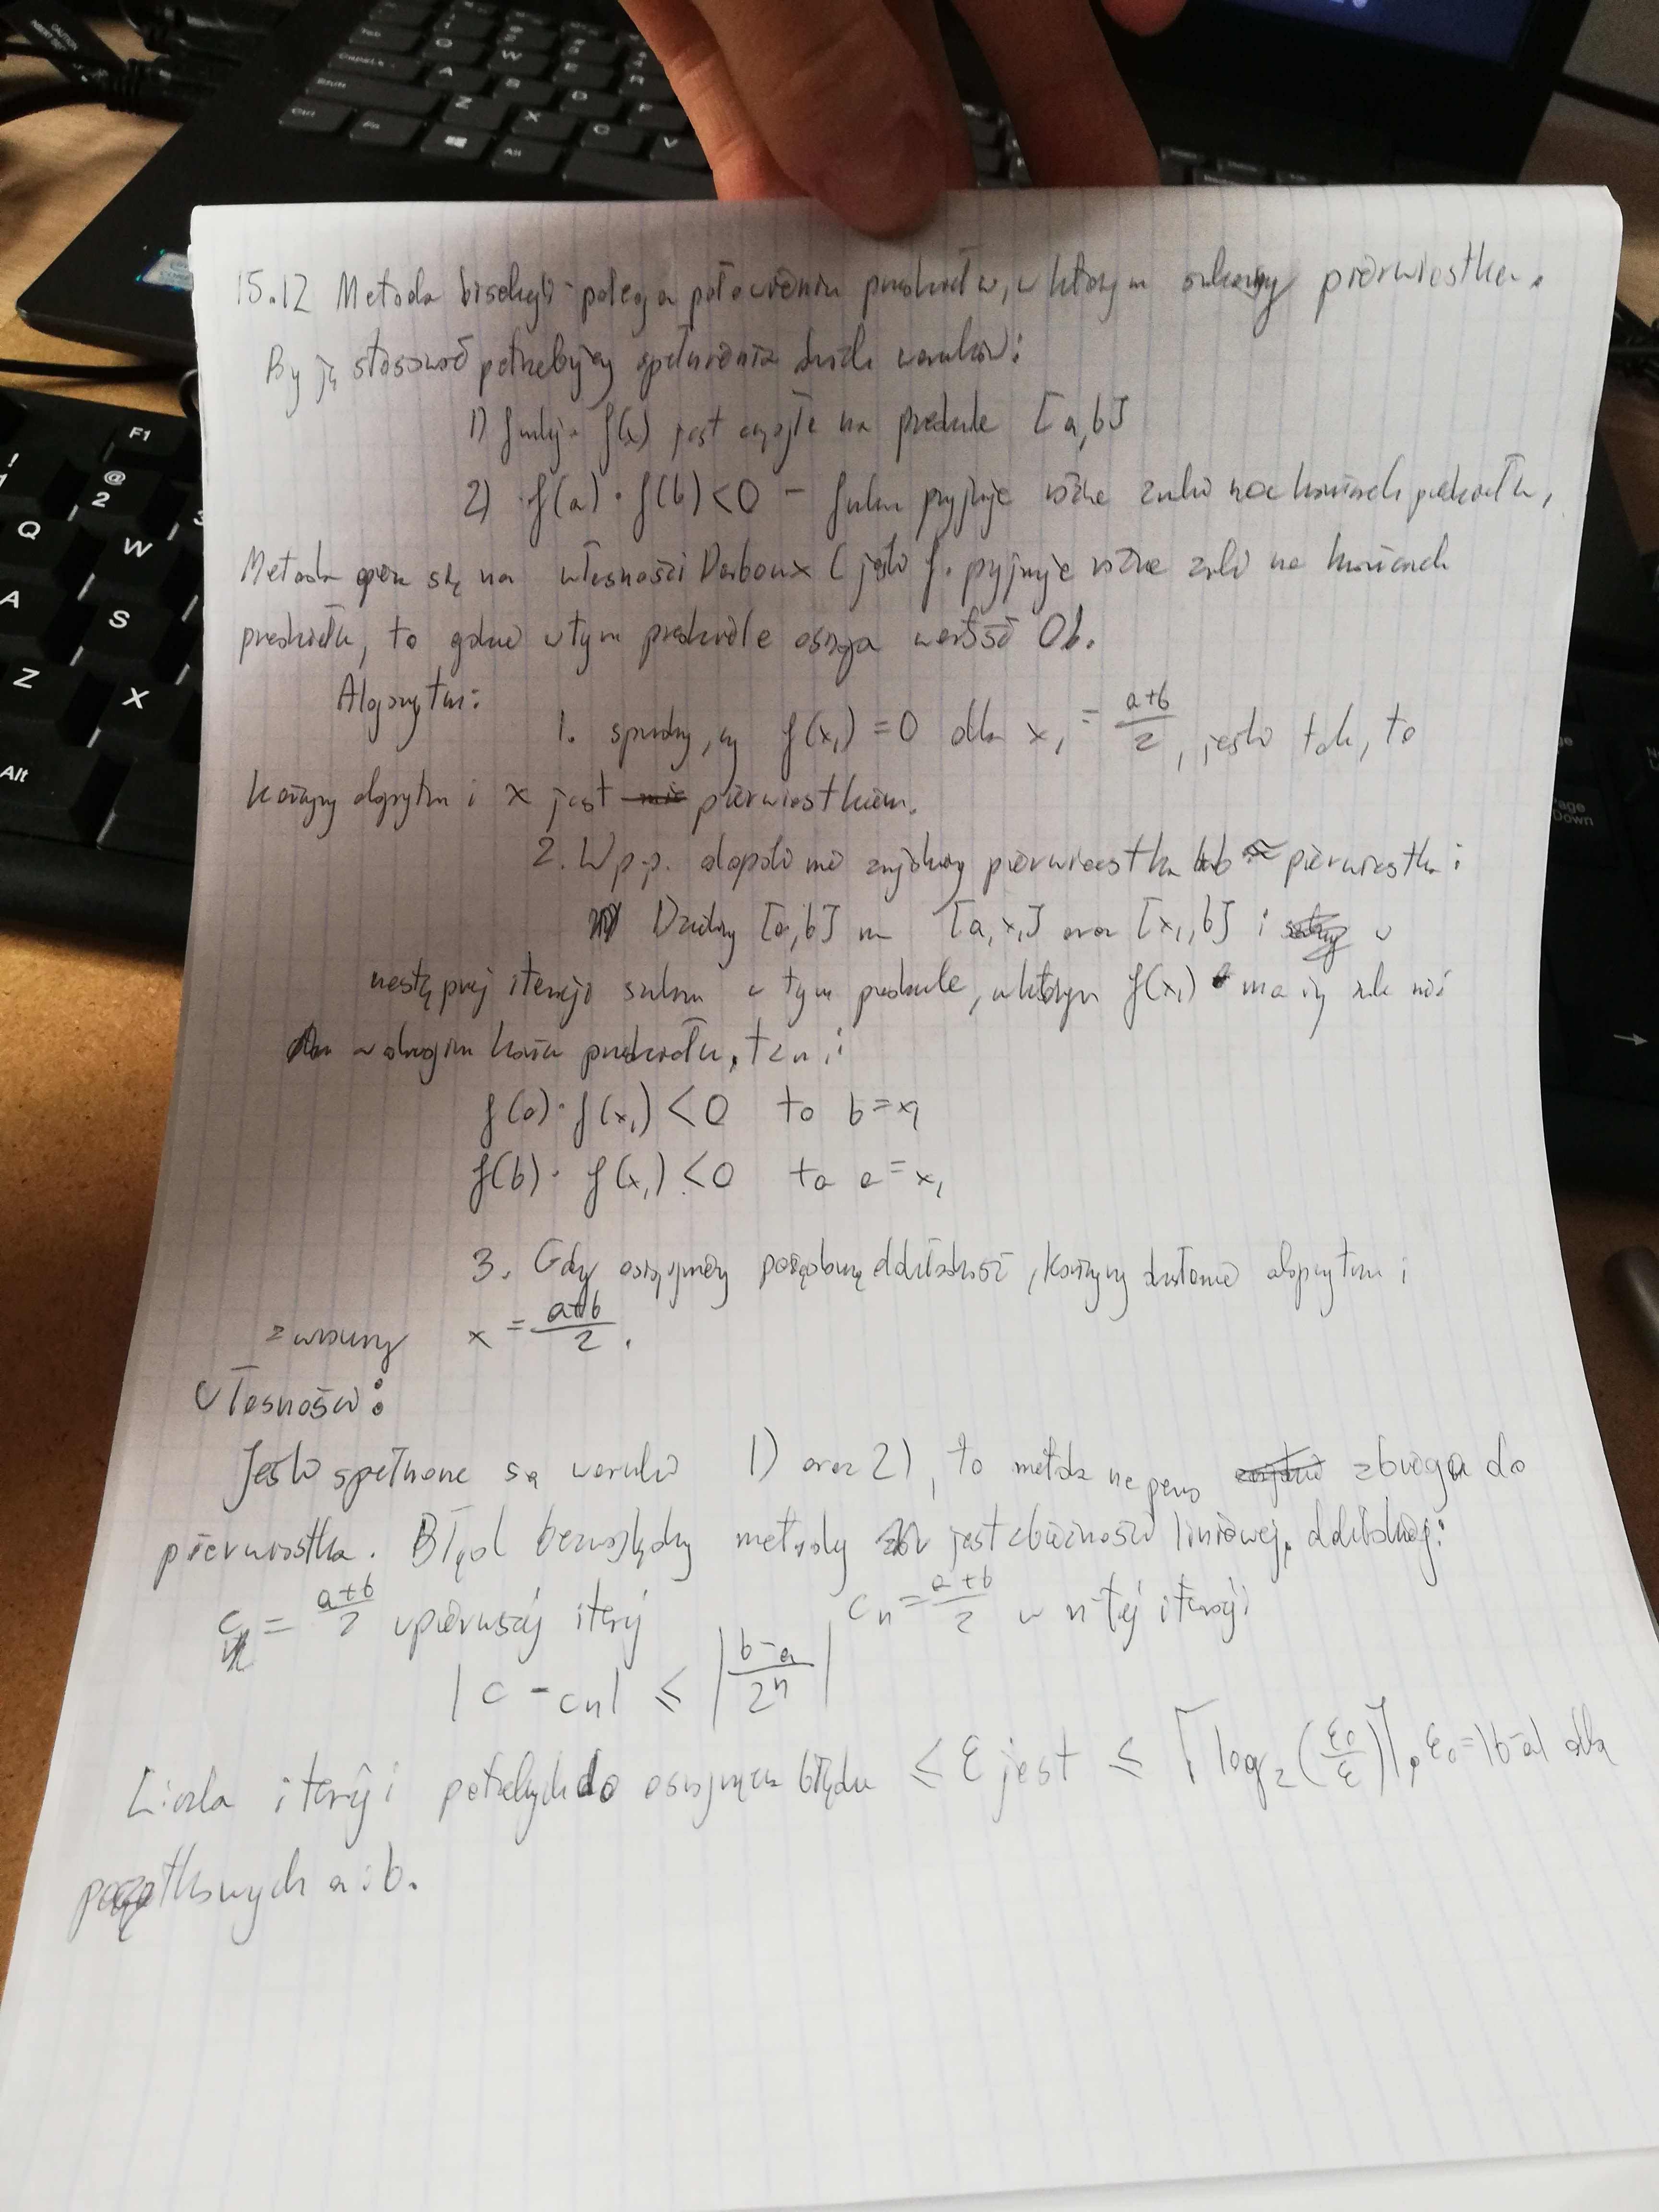 15.12 Metoda bisekcji - polega połowieniu przedziałów, w którym szukamy pierwiastka.
By ją stosować potrzebujemy spełnienia dwóch warunków:
1) funkcja f(x) jest ciągła na przedziale [a,b]
2) f(a) · f(b) < 0 - funkcja przyjmuje różne znaki na końcach przedziału,
Metoda opiera się na własności Darboux (jeśli f. przyjmuje różne znaki na końcach
przedziału, to gdzieś w tym przedziale osiąga wartość 0).
Algorytm:
1. sprawdzamy, czy f(x₁) = 0 dla x₁ = (a+b)/2, jeśli tak, to
kończymy algorytm i x jest pierwiastkiem.
2. W p.p. dopóki nie znajdziemy pierwiastka lub ≈ pierwiastka:
Dzielimy [a,b] na [a,x₁] oraz [x₁,b] i w
następnej iteracji szukamy w tym przedziale, w którym f(x₁) ma inny znak niż
w drugim końcu przedziału, tzn.:
f(a) · f(x₁) < 0 to b = x₁
f(b) · f(x₁) < 0 to a = x₁
3. Gdy osiągniemy pożądaną dokładność, kończymy działanie algorytmu i
zwracamy x = (a+b)/2.
Własności:
Jeśli spełnione są warunki 1) oraz 2), to metoda na pewno zbiega do
pierwiastka. Błąd bezwzględny metody jest zbieżności liniowej, dokładniej:
c₁ = (a+b)/2 w pierwszej iteracji cₙ = (a+b)/2 w n-tej iteracji
|c - cₙ| ≤ |(b-a)/2ⁿ|
Liczba iteracji potrzebnych do osiągnięcia błędu ≤ ε jest ≤ ⌈log₂(ε₀/ε)⌉, ε₀ = |b-a| dla
początkowych a i b.
F1
! @
1 2 3
Q W
A S
Z X
Alt
Page Down
Ctrl Fn Alt
A S D F
Z X C V